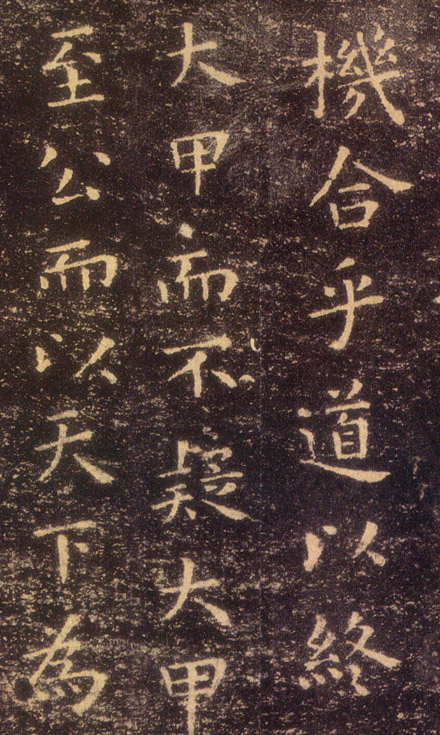 機合乎道以終
大甲而不疑大甲
至公而以天下為